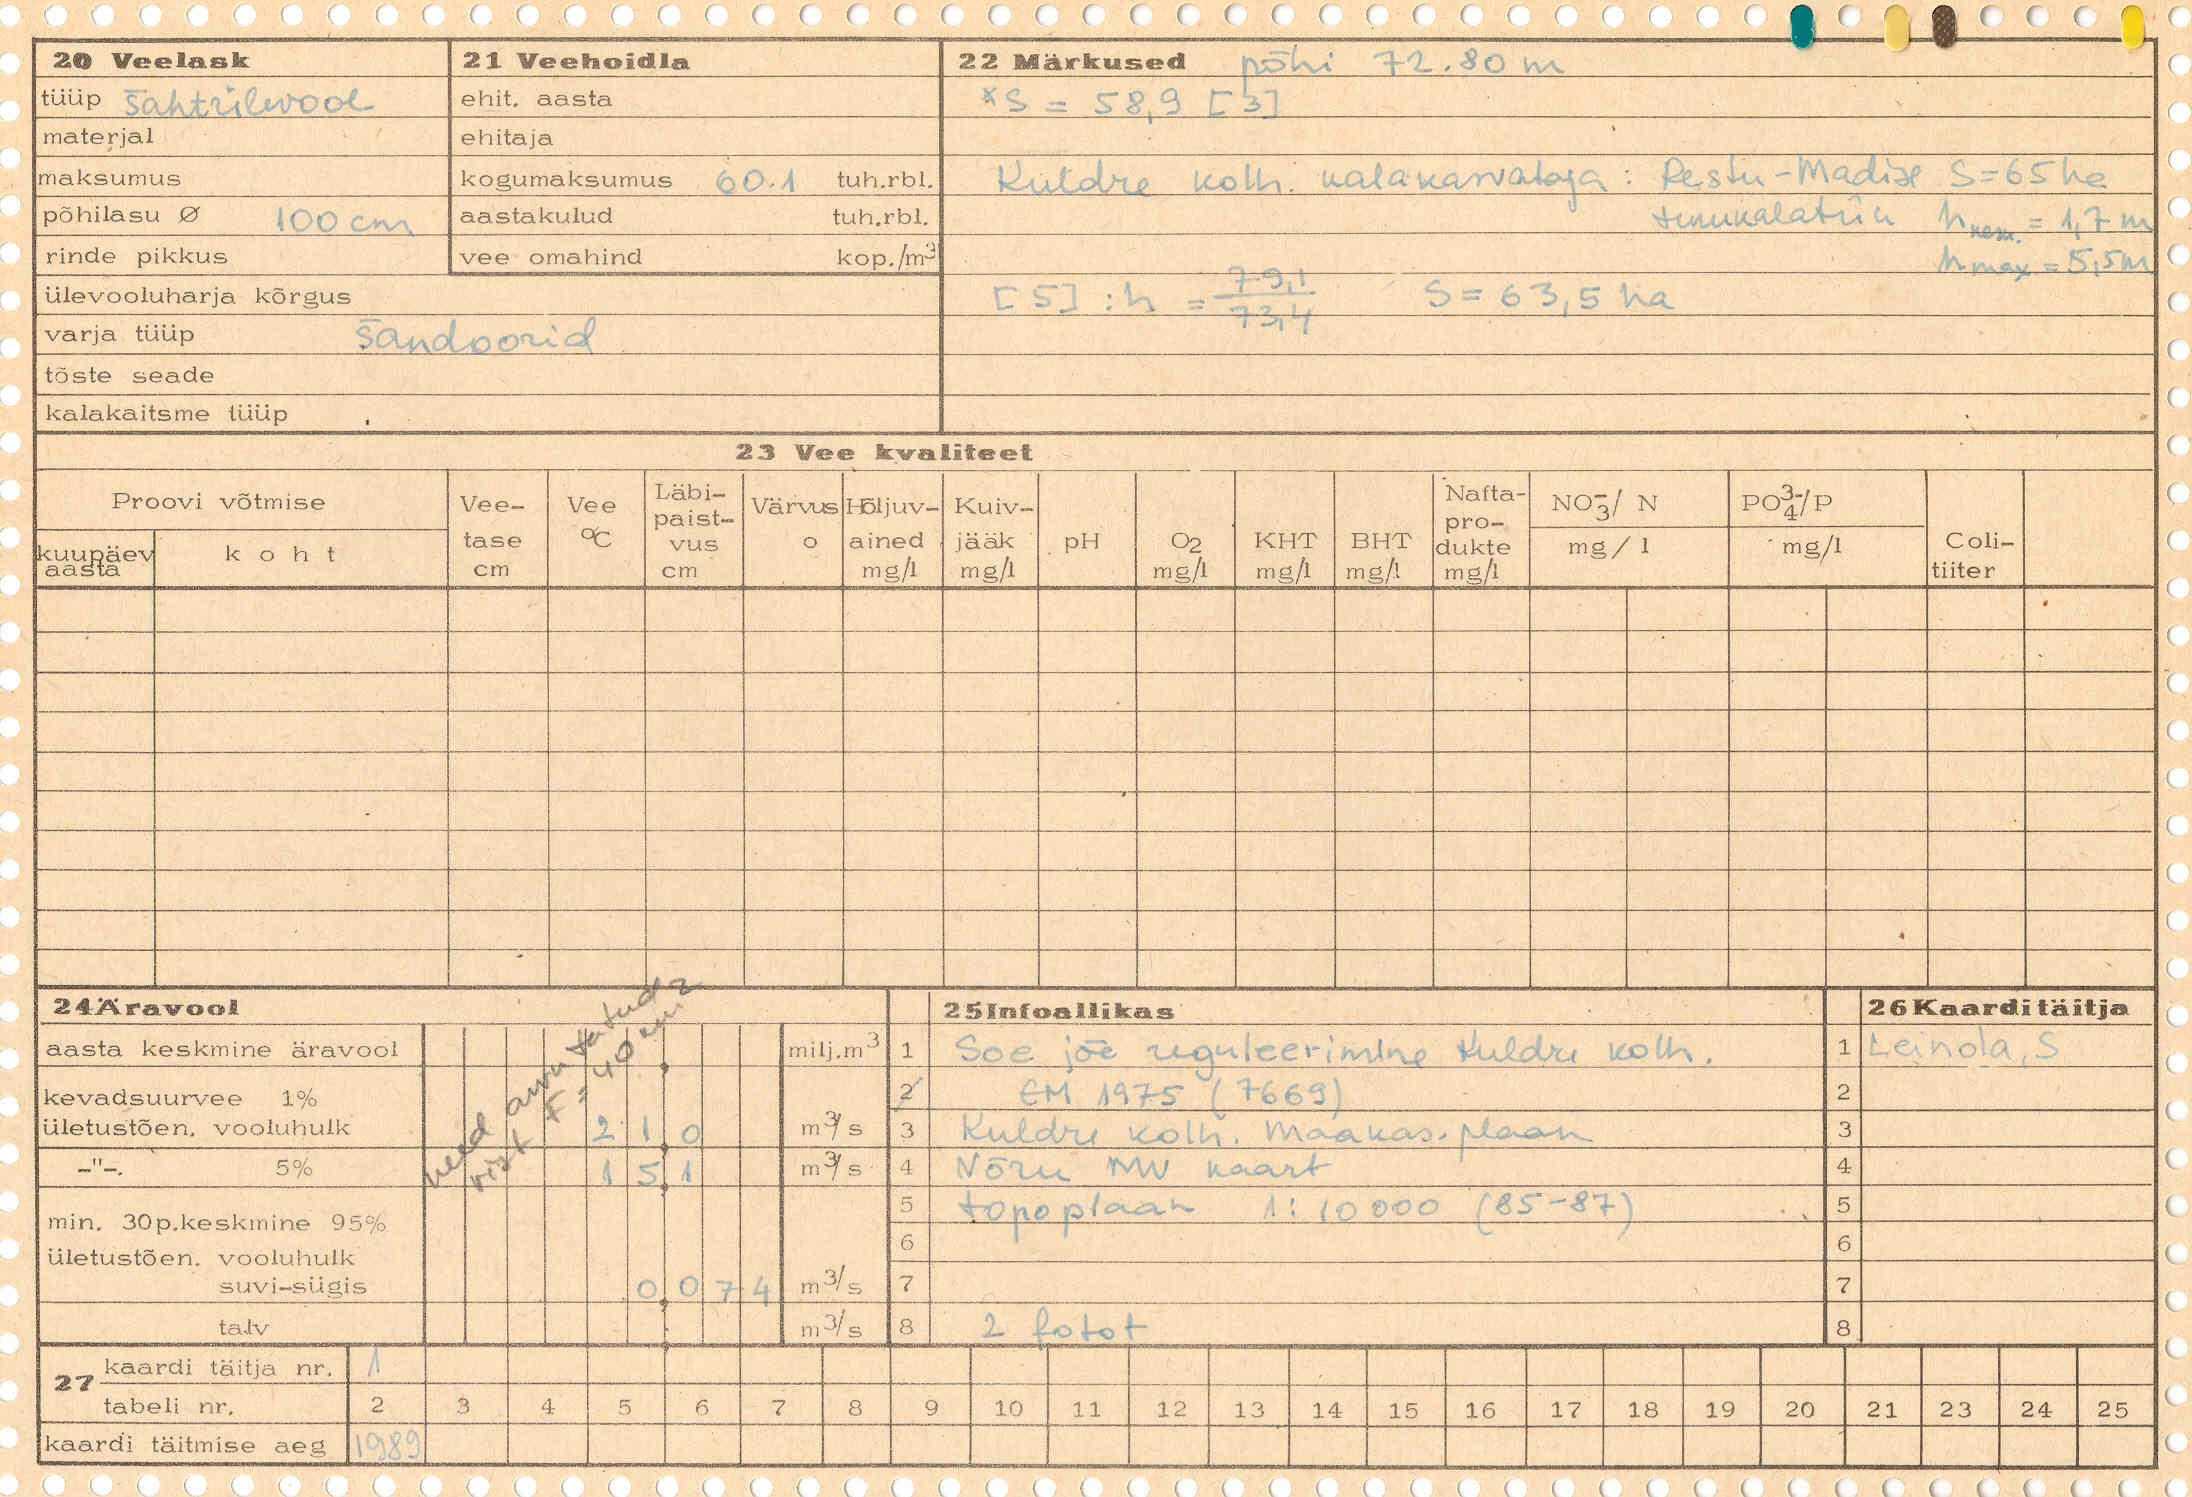 20 Veelask
tüüp šahtülevool
materjal
maksumus
põhilasu Ø 100 cm
rinde pikkus
ülevooluharja kõrgus
varja tüüp šandoorid
tõste seade
kalakaitsme tüüp
21 Veehoidla
ehit. aasta
ehitaja
kogumaksumus 60.1 tuh.rbl.
aastakulud tuh.rbl.
vee omahind kop./m³
22 Märkused põhi 72.80 m
*S = 58,9 [3]
Kuldre kolh. kalakasvataja: Restu-Madise S=65 ha
hkesk. = 1,7 m
hmax = 5,5 m
[5] : h = 79,1/73,4 S = 63,5 ha
23 Vee kvaliteet
Proovi võtmise
kuupäev aasta
koht
Vee-tase cm
Vee °C
Läbi-paist-vus cm
Värvus o
Hõljuv-ained mg/l
Kuiv-jääk mg/l
pH
O2 mg/l
KHT mg/l
BHT mg/l
Nafta-pro-dukte mg/l
NO3-/ N mg/l
PO4 3-/P mg/l
Coli-tiiter
24 Äravool
need arvutatud
vist F = 40 km2
aasta keskmine äravool milj.m³
kevadsuurvee 1%
ületustõen. vooluhulk 2 1 0 m³/s
-"-. 5% 1 5 1 m³/s
min. 30p.keskmine 95%
ületustõen. vooluhulk
suvi-sügis 0 0 7 4 m³/s
talv m³/s
25 Infoallikas
1 Soe jõe reguleerimine Kuldre kolh.
2 EM 1975 (7669)
3 Kuldre kolh. maakas. plaan
4 Nõru MV kaart
5 topoplaan 1:10 000 (85-87)
6
7
8 2 fotot
26 Kaardi täitja
1 Leinola, S
2
3
4
5
6
7
8
27 kaardi täitja nr. 1
tabeli nr. 2 3 4 5 6 7 8 9 10 11 12 13 14 15 16 17 18 19 20 21 23 24 25
kaardi täitmise aeg 1989